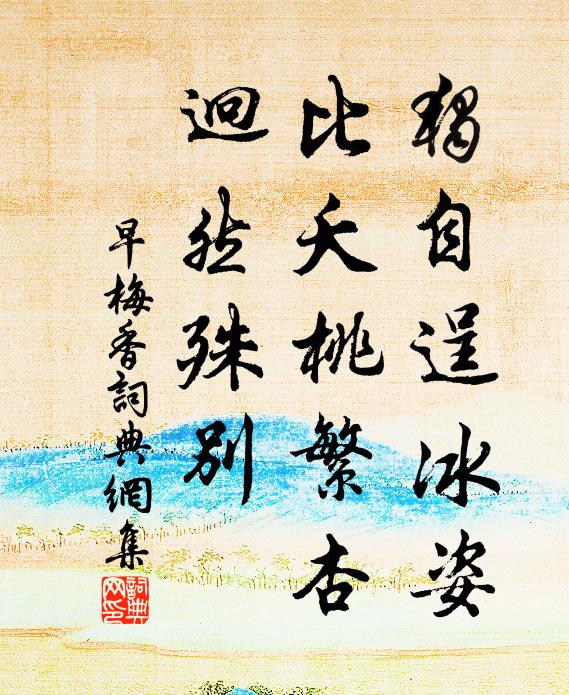 獨自逞冰姿
比夭桃繁杏
迥然殊別
早梅香詞典網集
詞典網印